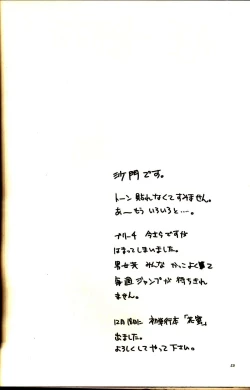 沙門です。
トーン貼れなくてすみません。
あ〜もういろいろと…。
ブリーチ 今さらですが
はまってしまいました。
男も女も みんな かっこよくて
毎週 ジャンプが 待ちきれ
ません。
12月18日に 初単行本「
出ました。
よろしくしてやって下さい。